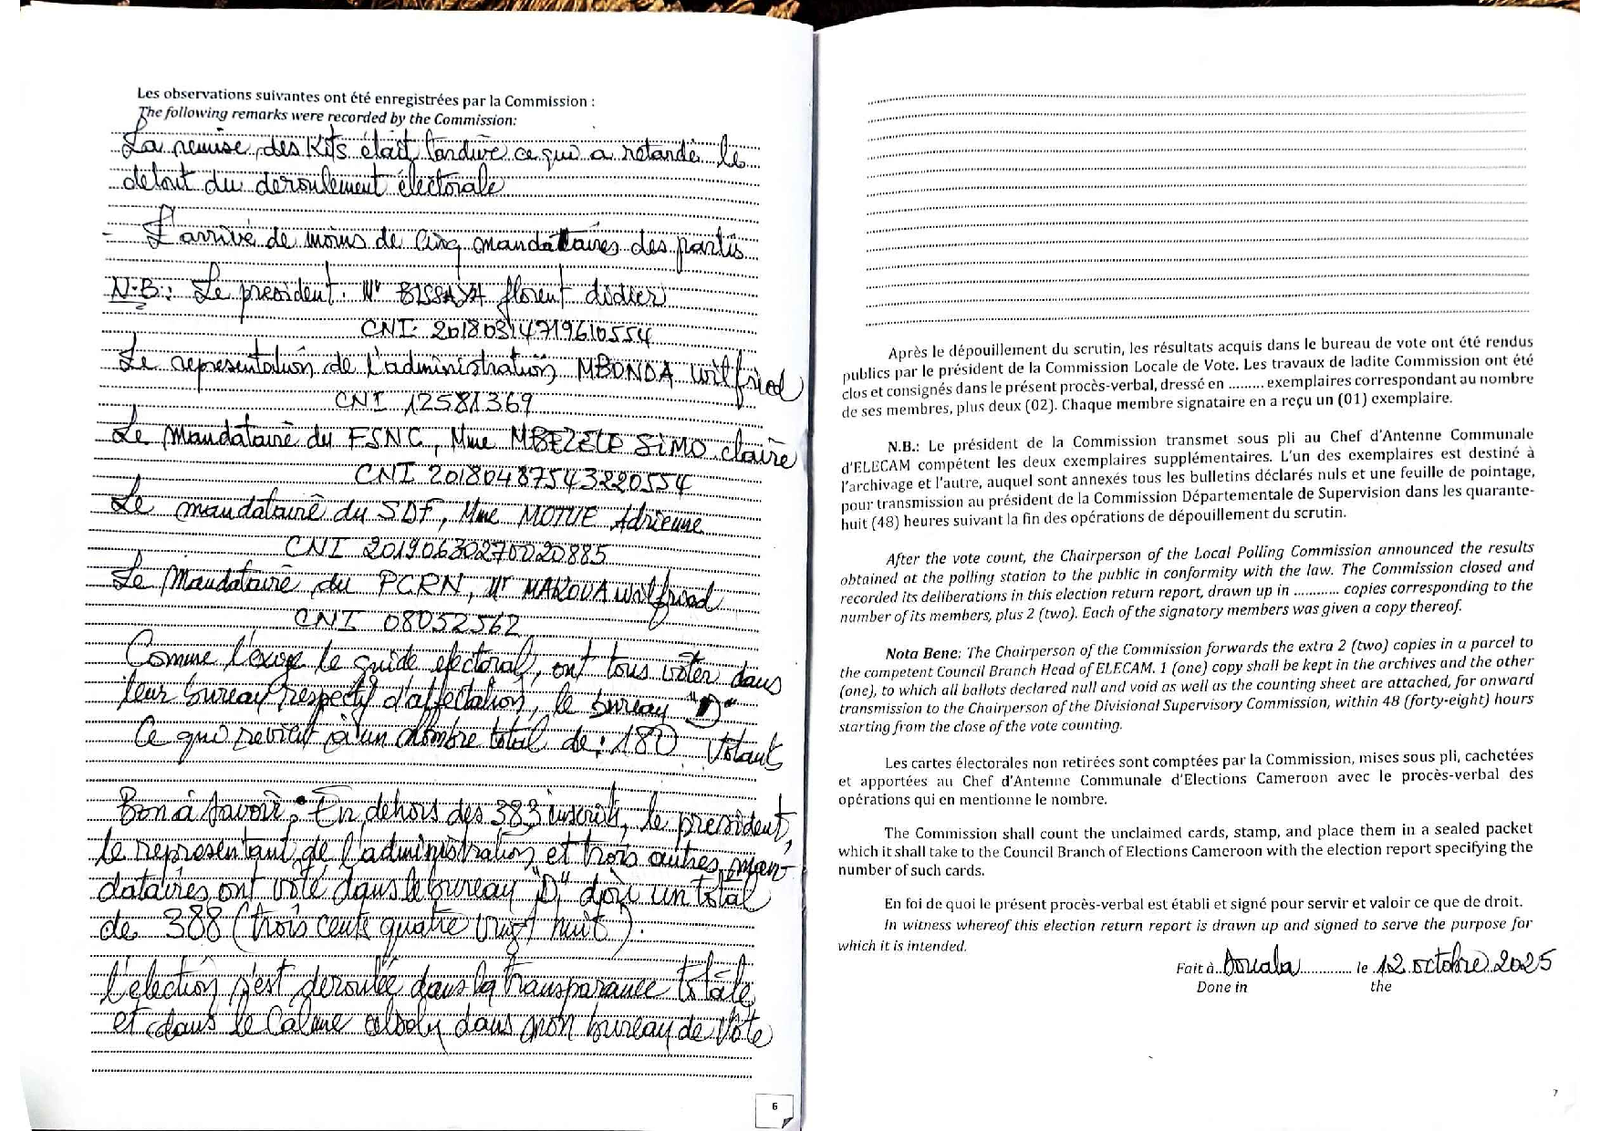 Les observations suivantes ont été enregistrées par la Commission :
The following remarks were recorded by the Commission:
La remise des Kits était tardive ce qui a retardé le
debut du deroulement électorale
- L'arrivé de moins de Cinq mandataires des partis
N.B.: Le president. Mr BISSAYA florent didier
CNI: 20180314719610554
Le representation de l'administration MBONDA wilfried
CNI 12581369
Le Mandataire du FSNC, Mme MBEZELE SIMO claire
CNI 20180487543220554
Le mandataire du SDF, Mme MOTUE Adrienne
CNI 20190630270020885
Le Mandataire du PCRN, Mr MAKOUA wilfried
CNI 08052562
Comme l'exige le guide electoral, ont tous voter dans
leur bureau respectif d'affectation, le bureau "D"
Ce qui revient à un Nombre total de : 180 Votants
Bon à savoir : En dehors des 383 inscrits, le president,
le representant de l'administration et trois autres man-
dataires ont voté dans le bureau "D" d'où un total
de 388 (trois cente quatre vingt huit).
l'élection s'est deroulée dans la transparance totale
et dans le Calme dans mon bureau de Vote
6
Après le dépouillement du scrutin, les résultats acquis dans le bureau de vote ont été rendus
publics par le président de la Commission Locale de Vote. Les travaux de ladite Commission ont été
clos et consignés dans le présent procès-verbal, dressé en ......... exemplaires correspondant au nombre
de ses membres, plus deux (02). Chaque membre signataire en a reçu un (01) exemplaire.
N.B.: Le président de la Commission transmet sous pli au Chef d'Antenne Communale
d'ELECAM compétent les deux exemplaires supplémentaires. L'un des exemplaires est destiné à
l'archivage et l'autre, auquel sont annexés tous les bulletins déclarés nuls et une feuille de pointage,
pour transmission au président de la Commission Départementale de Supervision dans les quarante-
huit (48) heures suivant la fin des opérations de dépouillement du scrutin.
After the vote count, the Chairperson of the Local Polling Commission announced the results
obtained at the polling station to the public in conformity with the law. The Commission closed and
recorded its deliberations in this election return report, drawn up in ........... copies corresponding to the
number of its members, plus 2 (two). Each of the signatory members was given a copy thereof.
Nota Bene: The Chairperson of the Commission forwards the extra 2 (two) copies in a parcel to
the competent Council Branch Head of ELECAM. 1 (one) copy shall be kept in the archives and the other
(one), to which all ballots declared null and void as well as the counting sheet are attached, for onward
transmission to the Chairperson of the Divisional Supervisory Commission, within 48 (forty-eight) hours
starting from the close of the vote counting.
Les cartes électorales non retirées sont comptées par la Commission, mises sous pli, cachetées
et apportées au Chef d'Antenne Communale d'Elections Cameroon avec le procès-verbal des
opérations qui en mentionne le nombre.
The Commission shall count the unclaimed cards, stamp, and place them in a sealed packet
which it shall take to the Council Branch of Elections Cameroon with the election report specifying the
number of such cards.
En foi de quoi le présent procès-verbal est établi et signé pour servir et valoir ce que de droit.
In witness whereof this election return report is drawn up and signed to serve the purpose for
which it is intended.
Fait à Douala ............ le 12 octobre 2025
Done in the
7